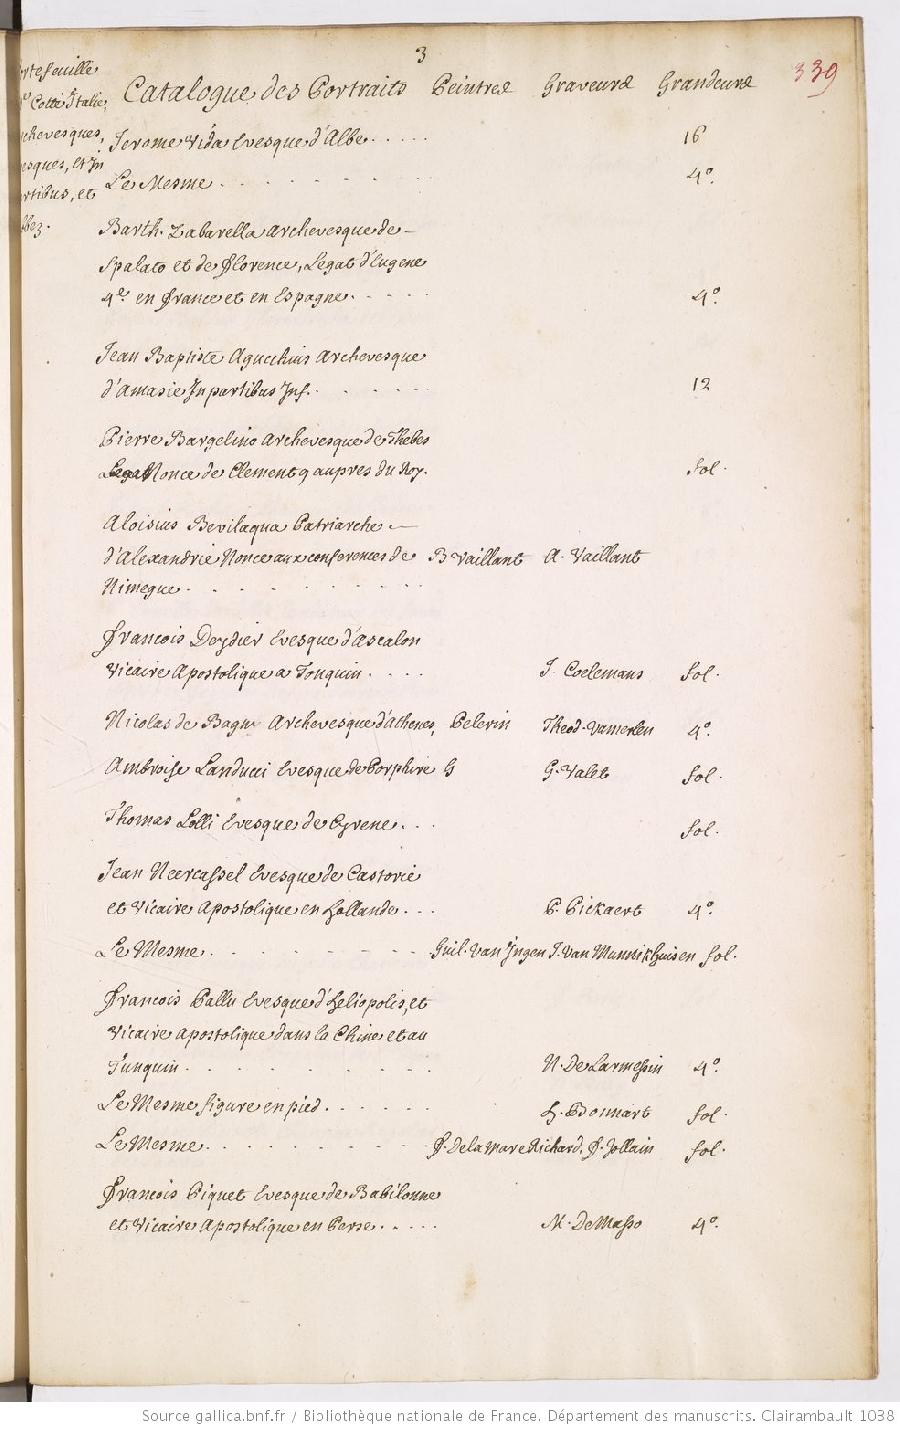 3
339
rtefeuille
Cotté Italie,
chevesques,
esques, et In
rtibus, et
bbez.
Catalogue des Portraits Peintres Graveurs Grandeurs
Jerome Vida Evesque d'Albe. . . . . 16
Le Mesme . . . . . . . . 4º.
Barth. Zabarella Archevesque de –
Spalato et de Florence, Legat d'Eugene
4e. en France et en Espagne. . . . . 4º.
Jean Baptiste Agucchius Archevesque
d'Amasie In partibus Inf. . . . . . 12
Pierre Bargelino Archevesque de Thebes
Nonce de Clement 9 aupres du Roy. fol.
Aloisius Bevilaqua Patriarche –
d'Alexandrie Nonce aux conferences de B Vaillant A. Vaillant
Nimegue . . . . . . . . .
François Deydier Evesque d'Ascalon
Vicaire Apostolique a Tonquin. . . . J. Coelemans fol.
Nicolas de Bagn Archevesque d'Athenes, Pelerin Theod. Vamerlen 4º.
Ambroise Landucci Evesque de Porphire G G. Valet fol.
Thomas Lolli Evesque de Cyrene. . . fol.
Jean Neercassel Evesque de Castorie
et Vicaire Apostolique en Hollande. . . P. Pickaert 4º.
Le Mesme. . . . . . . . Guil. Van Ingen J. Van Munnikhuisen fol.
François Pallu Evesque d'Heliopolis, et
Vicaire Apostolique dans la Chine et au
Tunquin. . . . . . . . N. De Larmessin 4º.
Le Mesme figure en pied. . . . . . H. Bonnart fol.
Le Mesme. . . . . . . . F. Dela Mare Richard, F. Jollain fol.
François Piquet Evesque de Babilonne
et Vicaire Apostolique en Perse. . . . . M. De Masso 4º.
Source gallica.bnf.fr / Bibliothèque nationale de France. Département des manuscrits. Clairambault 1038